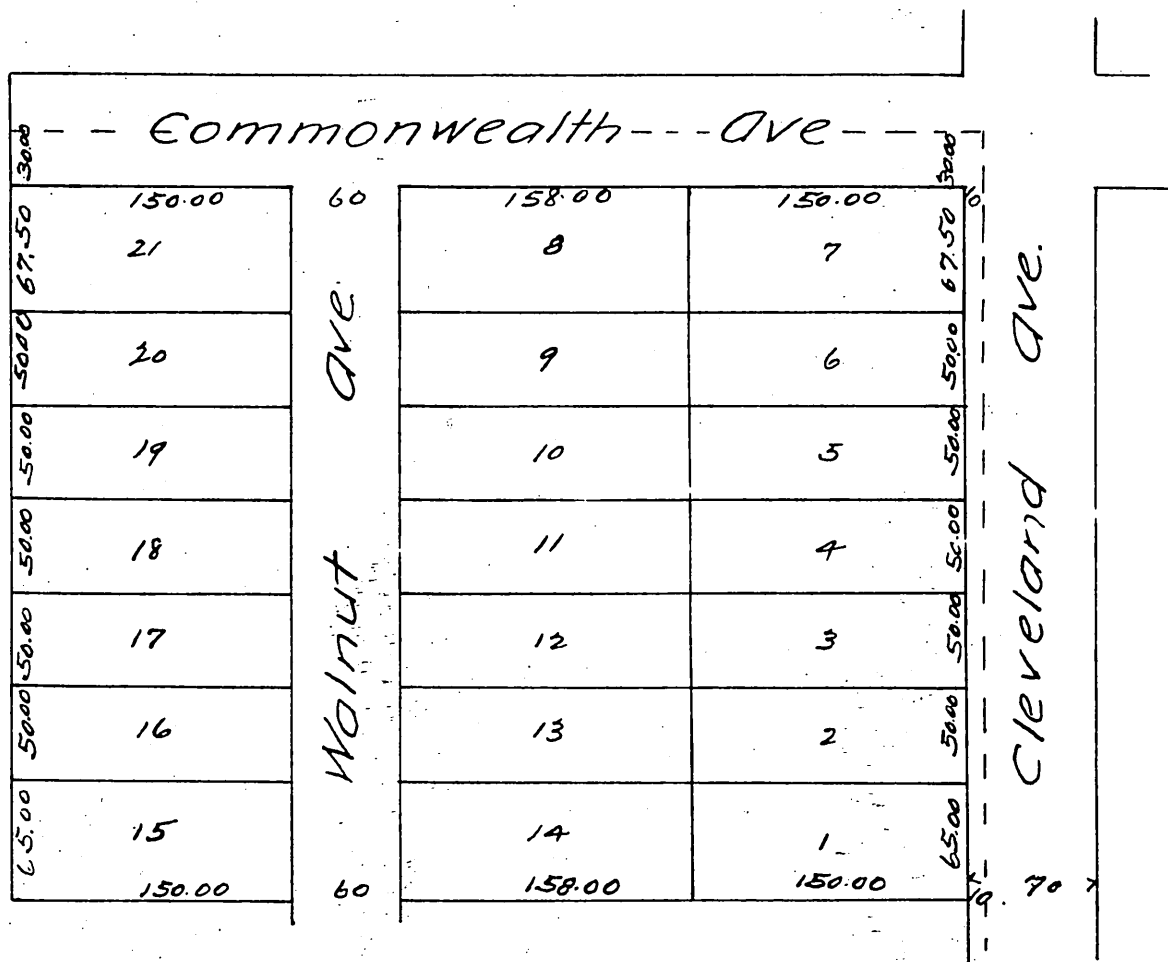 Commonwealth Ave
30.00
30.00
150.00 60 158.00 150.00 10
67.50 21 8 7 67.50
50.00 20 9 6 50.00
50.00 19 10 5 50.00
50.00 18 11 4 50.00
50.00 17 12 3 50.00
50.00 16 13 2 50.00
65.00 15 14 1 65.00
150.00 60 158.00 150.00 10 70
Walnut Ave.
Cleveland Ave.